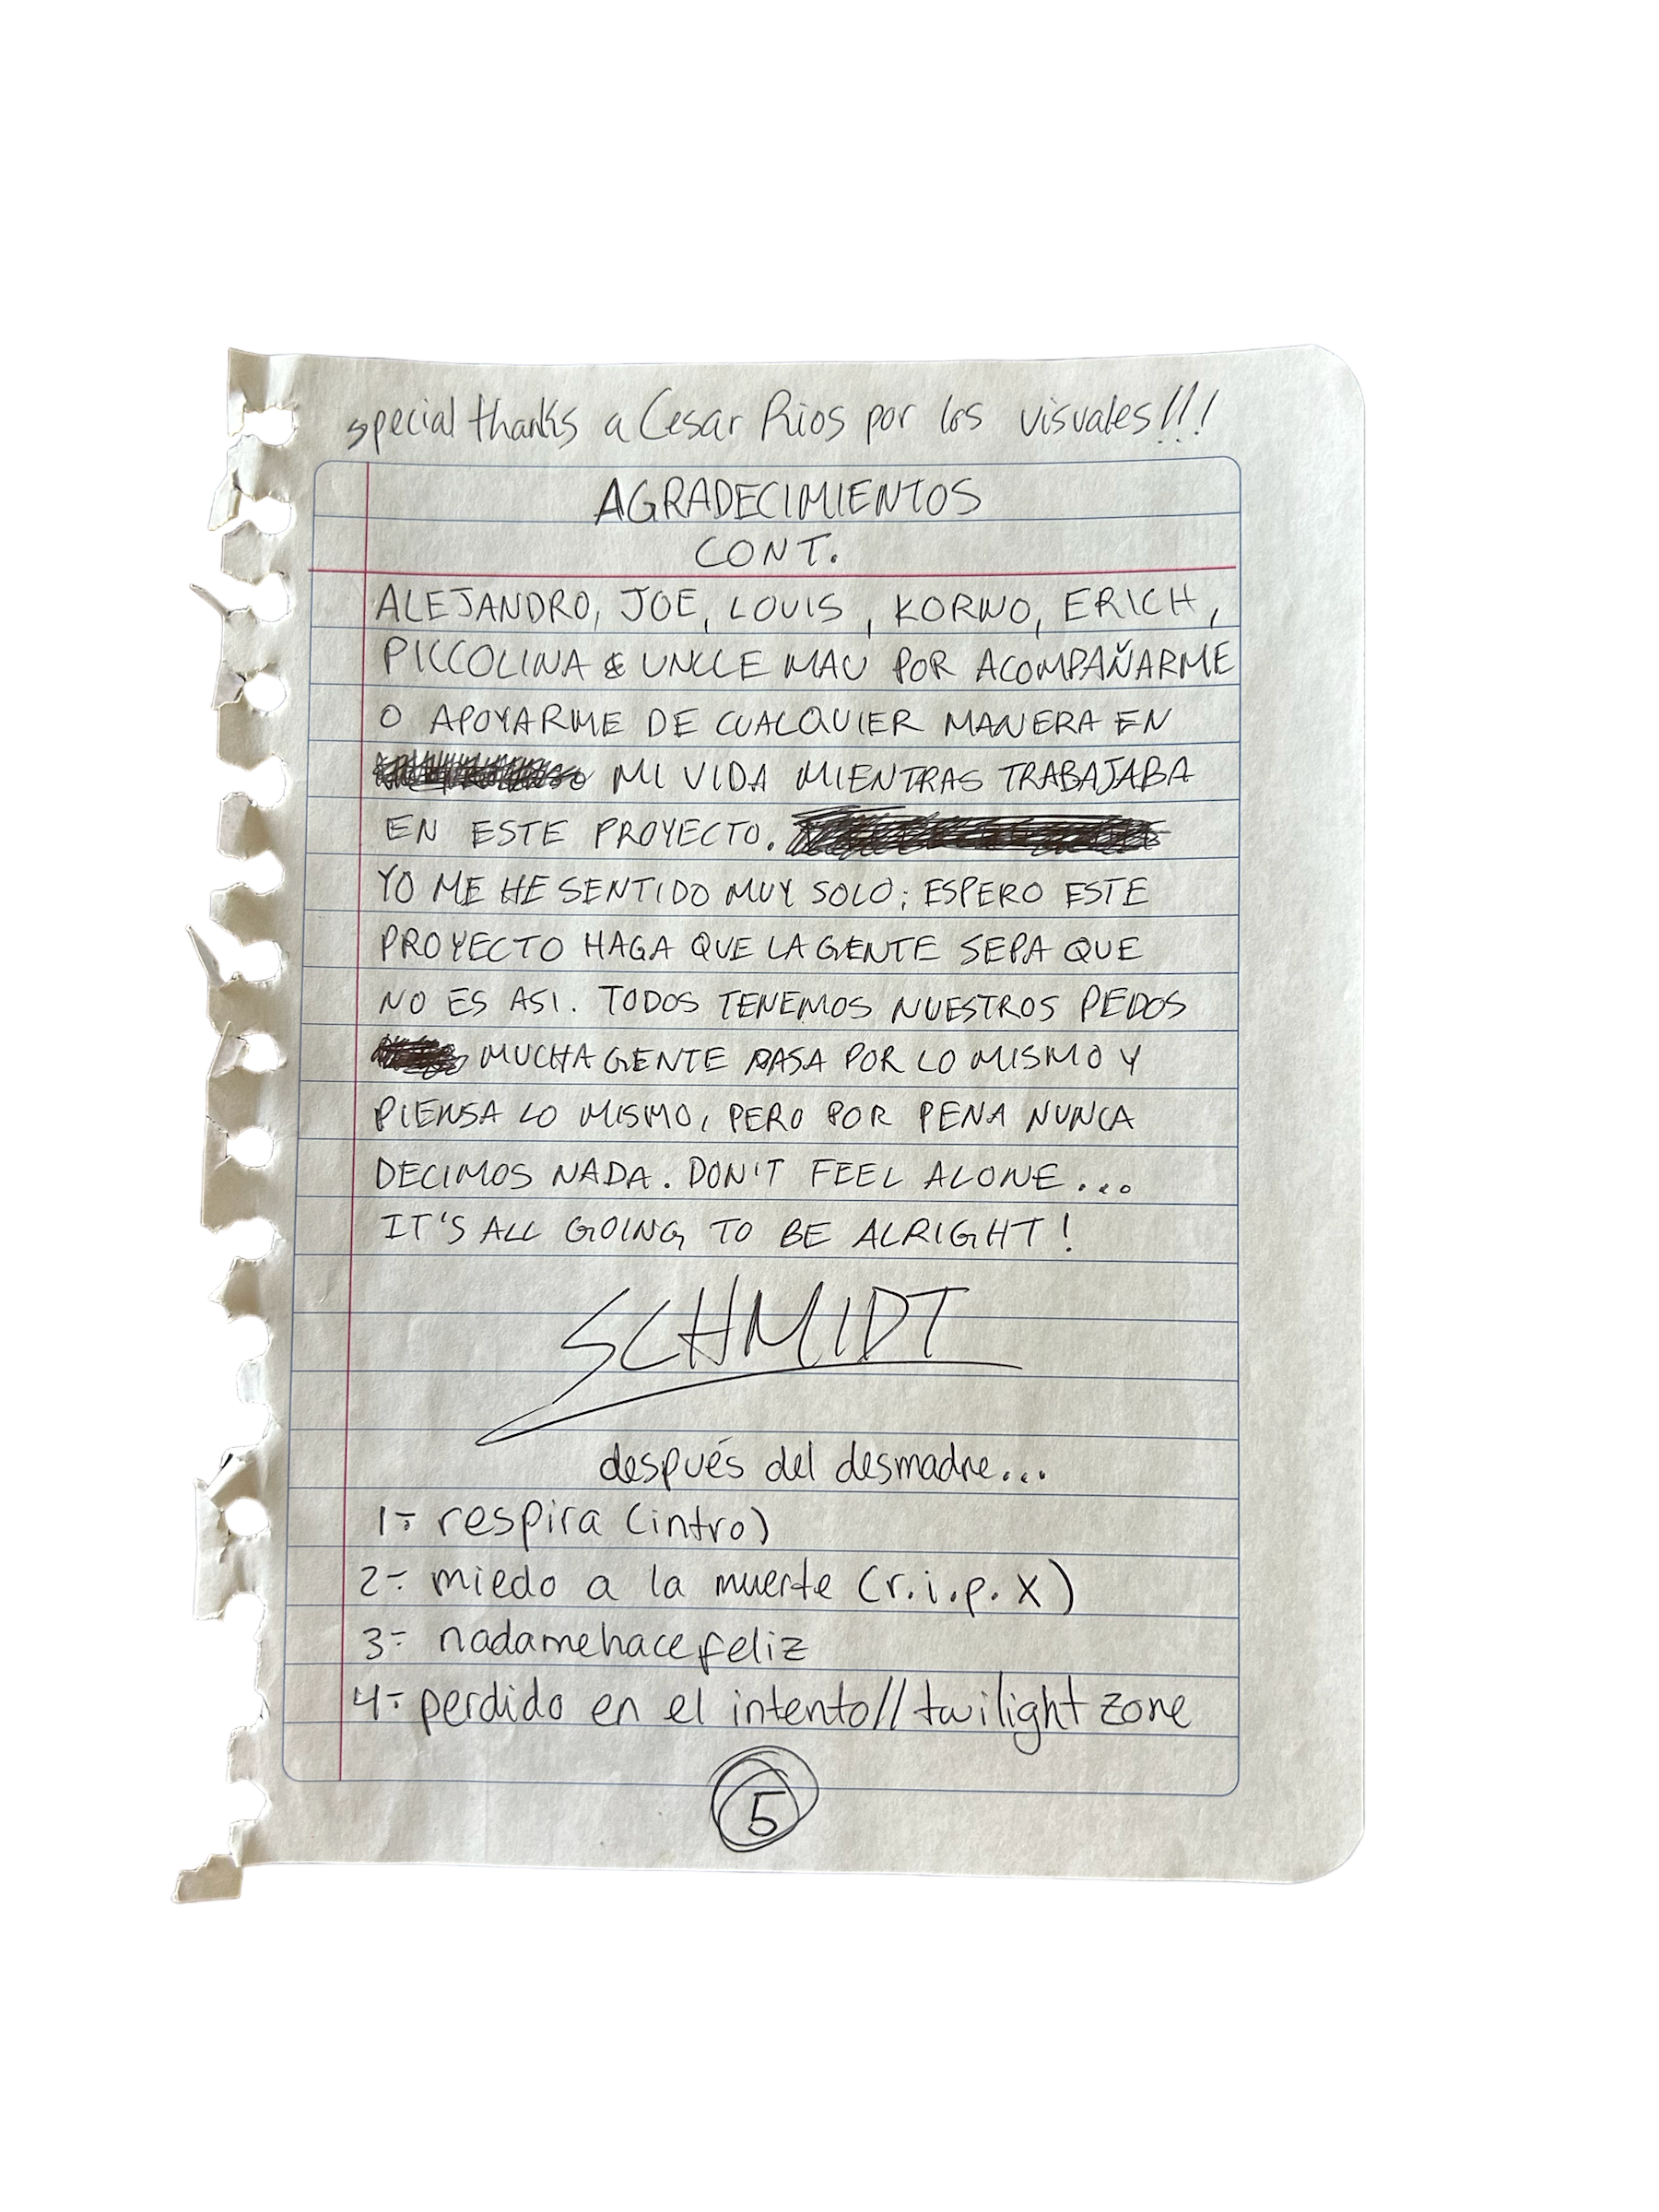 special thanks a Cesar Rios por los visuales!!!
AGRADECIMIENTOS
CONT.
ALEJANDRO, JOE, LOUIS, KORNO, ERICH,
PICCOLINA & UNCLE MAU POR ACOMPAÑARME
O APOYARME DE CUALQUIER MANERA EN
MI VIDA MIENTRAS TRABAJABA
EN ESTE PROYECTO.
YO ME HE SENTIDO MUY SOLO; ESPERO ESTE
PROYECTO HAGA QUE LA GENTE SEPA QUE
NO ES ASI. TODOS TENEMOS NUESTROS PEDOS
MUCHA GENTE PASA POR LO MISMO Y
PIENSA LO MISMO, PERO POR PENA NUNCA
DECIMOS NADA. DON'T FEEL ALONE...
IT'S ALL GOING TO BE ALRIGHT!
SCHMIDT
después del desmadre...
1- respira (intro)
2- miedo a la muerte (r.i.p. X)
3- nadamehacefeliz
4- perdido en el intento//twilight zone
5